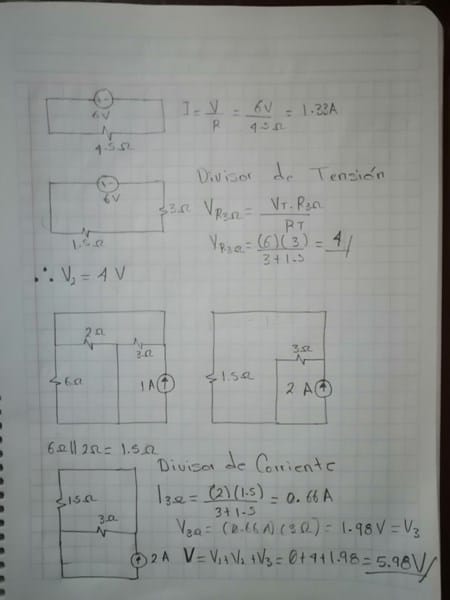 6V
4.5Ω
I = V/R = 6V/4.5Ω = 1.33A
Divisor de Tensión
6V
3Ω
1.5Ω
VR3Ω = VT.R3Ω/RT
VR3Ω = (6)(3)/3+1.5 = 4
∴ V2 = 4 V
2Ω
3Ω
6Ω
1A
1.5Ω
3Ω
2 A
6Ω||2Ω = 1.5Ω
Divisor de Corriente
1.5Ω
3Ω
2A
I3Ω = (2)(1.5)/3+1.5 = 0.66A
V3Ω = (0.66A)(3Ω) = 1.98V = V3
V = V1+V2+V3 = 0+4+1.98 = 5.98V